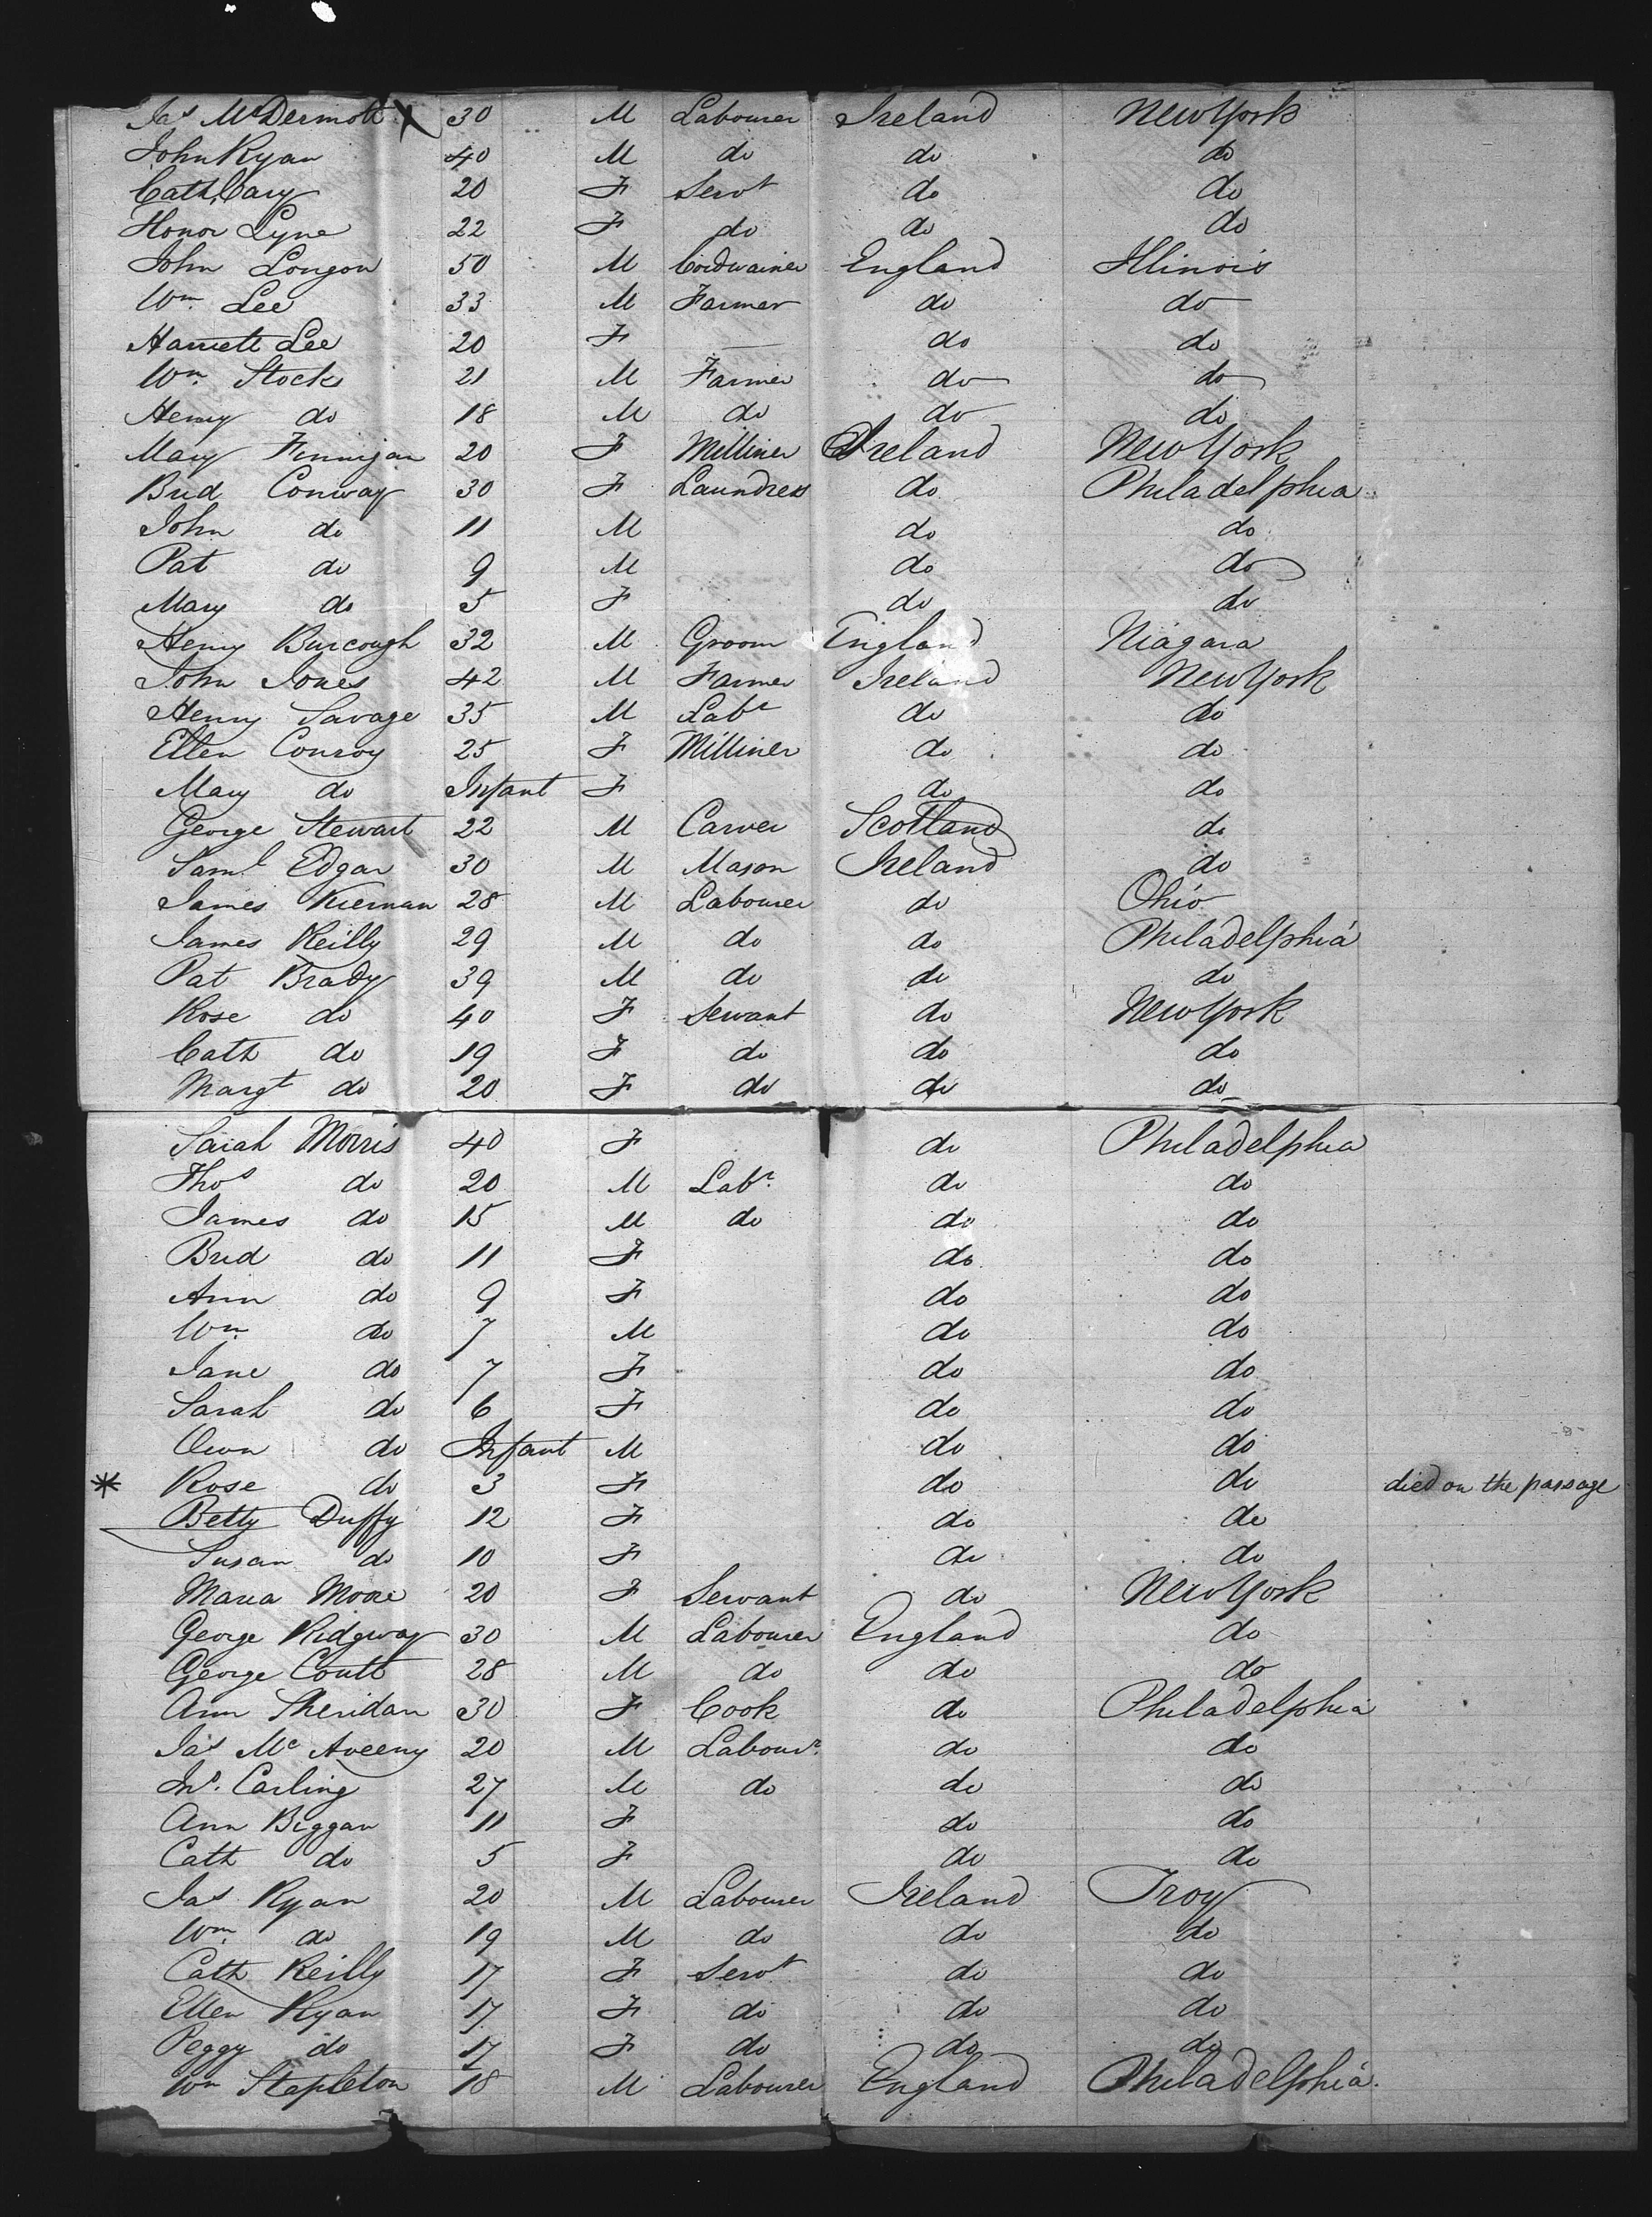 Jas McDermott X 30 M Labourer Ireland New York
John Ryan 40 M do do do
Cath Cary 20 F Servt do do
Honor Lyne 22 F do do do
John Longon 50 M Cordwainer England Illinois
Wm Lee 33 M Farmer do do
Harriett Lee 20 F — do do
Wm. Stocks 21 M Farmer do do
Henry do 18 M do do do
Mary Finnigan 20 F Milliner Ireland New York
Brid Conway 30 F Laundress do Philadelphia
John do 11 M do do
Pat do 9 M do do
Mary do 5 F do do
Henry Burcough 32 M Groom England Niagara
John Jones 42 M Farmer Ireland New York
Henry Savage 35 M Labr do do
Ellen Conroy 25 F Milliner do do
Mary do Infant F do do
George Stewart 22 M Carver Scotland do
Saml Edgar 30 M Mason Ireland do
James Kiernan 28 M Labourer do Ohio
James Reilly 29 M do do Philadelphia
Pat Brady 39 M do do do
Rose do 40 F Servant do New York
Cath do 19 F do do do
Margt do 20 F do do do
Sarah Morris 40 F do Philadelphia
Thos do 20 M Labr. do do
James do 15 M do do do
Brid do 11 F do do
Ann do 9 F do do
Wm. do 7 M do do
Jane do 7 F do do
Sarah do 6 F do do
Owen do Infant M do do
* Rose do 3 F do do died on the passage
Betty Duffy 12 F do do
Susan do 10 F do do
Maria Moore 20 F Servant do New York
George Ridgway 30 M Labourer England do
George Coutt 28 M do do do
Ann Sheridan 30 F Cook do Philadelphia
Jas Mc Aveeny 20 M Labourr. do do
Jno. Carling 27 M do do do
Ann Biggan 11 F do do
Cath do 5 F do do
Jas Ryan 20 M Labourer Ireland Troy
Wm. do 19 M do do do
Cath Reilly 17 F Servt do do
Ellen Ryan 17 F do do do
Peggy do 17 F do do do
Wm Stapleton 18 M Labourer England Philadelphia.